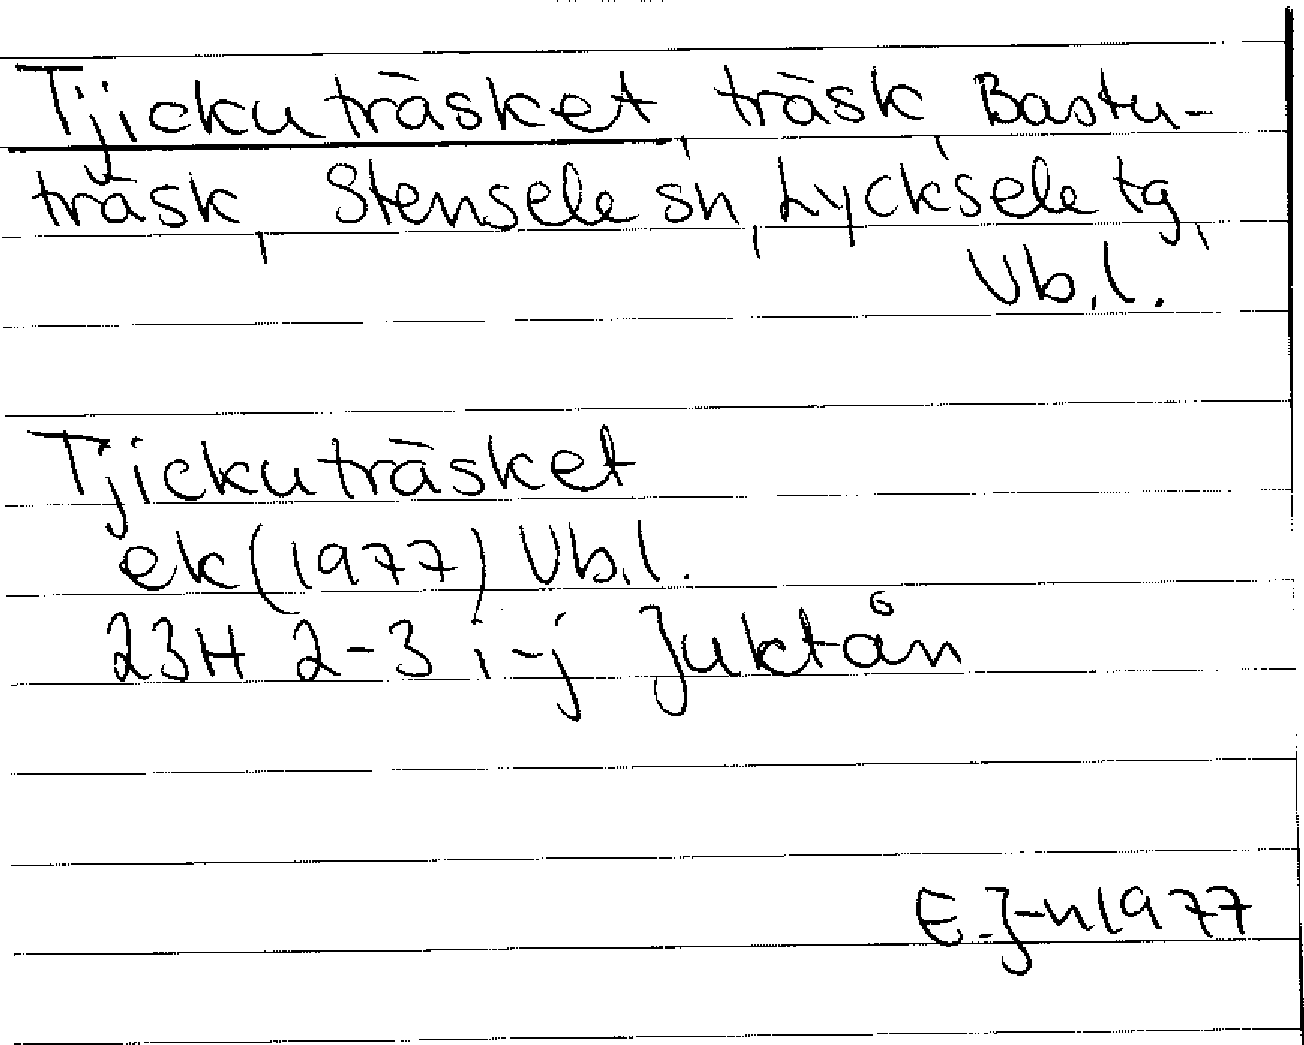 Tjickuträsket, träsk, Bastu-
träsk, Stensele sn, Lycksele tg,
Vb.l.
Tjickuträsket
ek (1977) Vb.l.
23H 2-3 i-j Juktån
E.J-n 1977